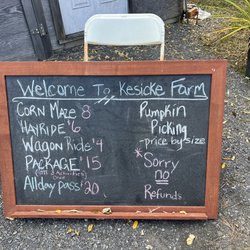 Welcome To Kesicke Farm
Corn Maze 8
HayRide $6
Wagon Ride $4
Package $15
All day pass $20
Pumpkin
Picking
- price by size
* Sorry
no
Refunds